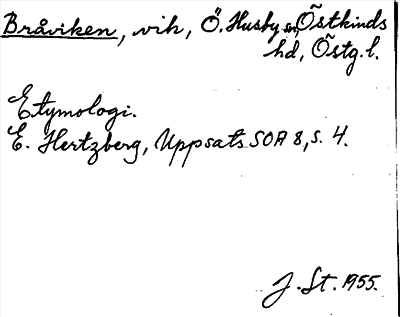 Bråviken, vik, Ö. Husby sn, Östkinds
hd, Östg. l.
Etymologi.
E. Hertzberg, Uppsats SOA 8, s. 4.
J. St. 1955.